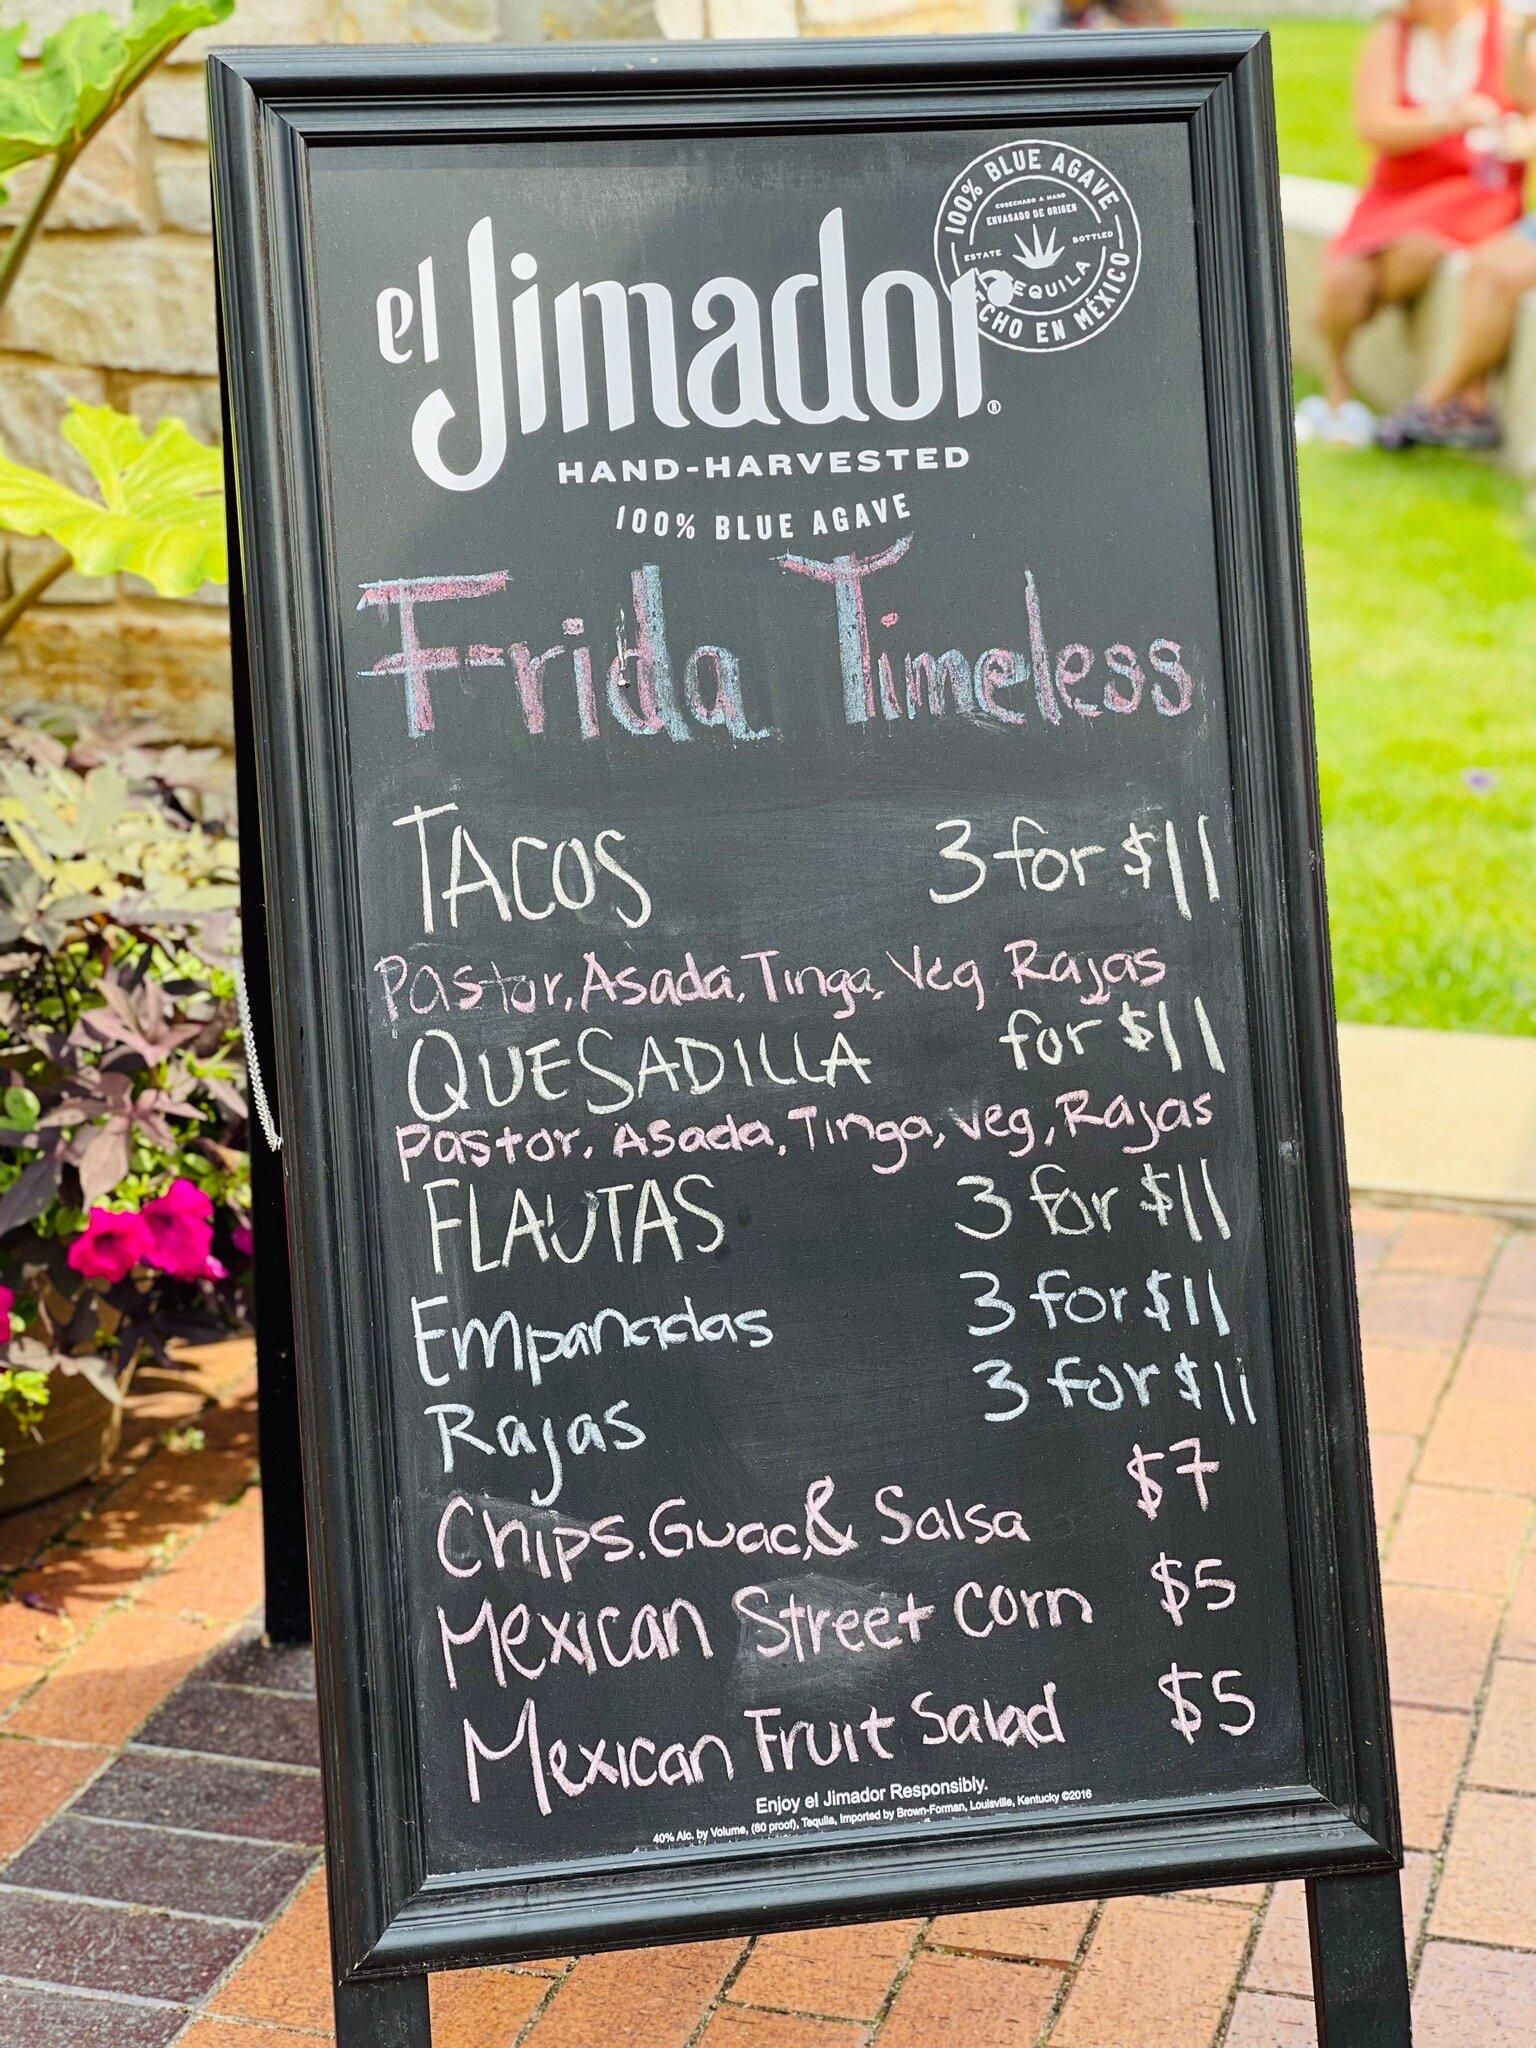 100% BLUE AGAVE
COSECHADO A MANO
ENVASADO DE ORIGEN
ESTATE BOTTLED
TEQUILA
HECHO EN MÉXICO
el Jimador®
HAND-HARVESTED
100% BLUE AGAVE
Frida Timeless
TACOS 3 for $11
Pastor, Asada, Tinga, Veg Rajas
QUESADILLA for $11
Pastor, Asada, Tinga, veg, Rajas
FLAUTAS 3 for $11
Empanadas 3 for $11
Rajas 3 for $11
Chips, Guac, & Salsa $7
Mexican Street Corn $5
Mexican Fruit Salad $5
Enjoy el Jimador Responsibly.
40% Alc. by Volume, (80 proof), Tequila, Imported by Brown-Forman, Louisville, Kentucky ©2016